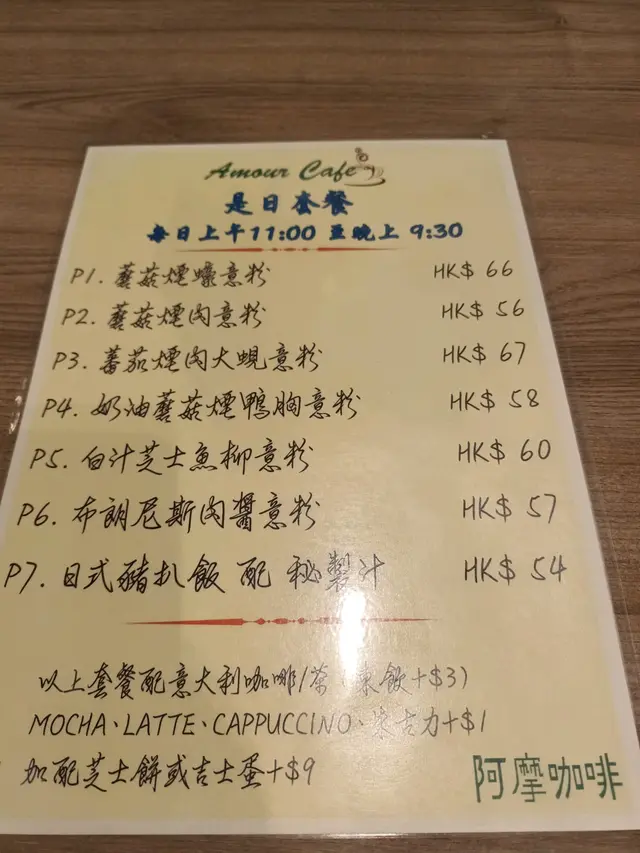 Amour Cafe
是日套餐
每日上午11:00 至晚上 9:30
P1. 蘑菇煙蠔意粉 HK$ 66
P2. 蘑菇煙肉意粉 HK$ 56
P3. 蕃茄煙肉大蜆意粉 HK$ 67
P4. 奶油蘑菇煙鴨胸意粉 HK$ 58
P5. 白汁芝士魚柳意粉 HK$ 60
P6. 布朗尼斯肉醬意粉 HK$ 57
P7. 日式豬扒飯 配 秘製汁 HK$ 54
以上套餐配意大利咖啡/茶 (凍飲+$3)
MOCHA、LATTE、CAPPUCCINO、朱古力+$1
加配芝士餅或吉士蛋+$9
阿摩咖啡